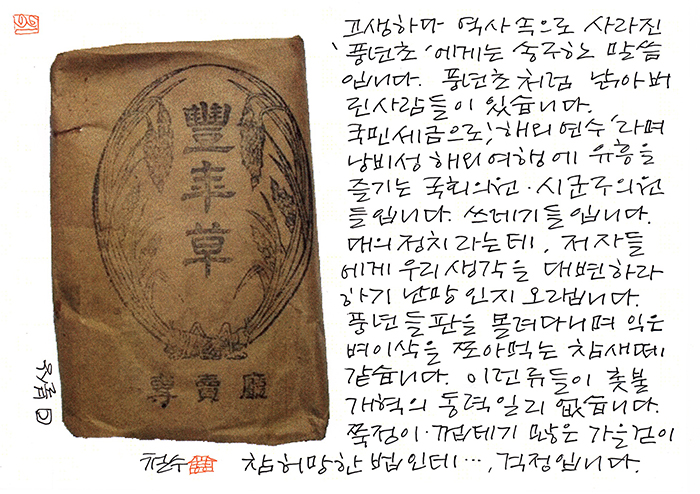 고생하다 역사 속으로 사라진
'풍년초'에게는 송구하는 말씀
입니다. 풍년초처럼 낡아버
린 사람들이 있습니다.
국민세금으로, '해외연수'라며
낭비성 해외여행에 유흥을
즐기는 국회의원·시군구의원
들입니다. 쓰레기들입니다.
대의정치라는데, 저자들
에게 우리 생각을 대변하라
하기 난망인지 오랩니다.
풍년 들판을 몰려다니며 익은
벼이삭을 쪼아먹는 참새떼
같습니다. 이런류들이 촛불
개혁의 동력일리 없습니다.
쭉정이·껍데기 많은 가을걷이
참 허망한 법인데…, 걱정입니다.
철수
豐年草
專賣廳